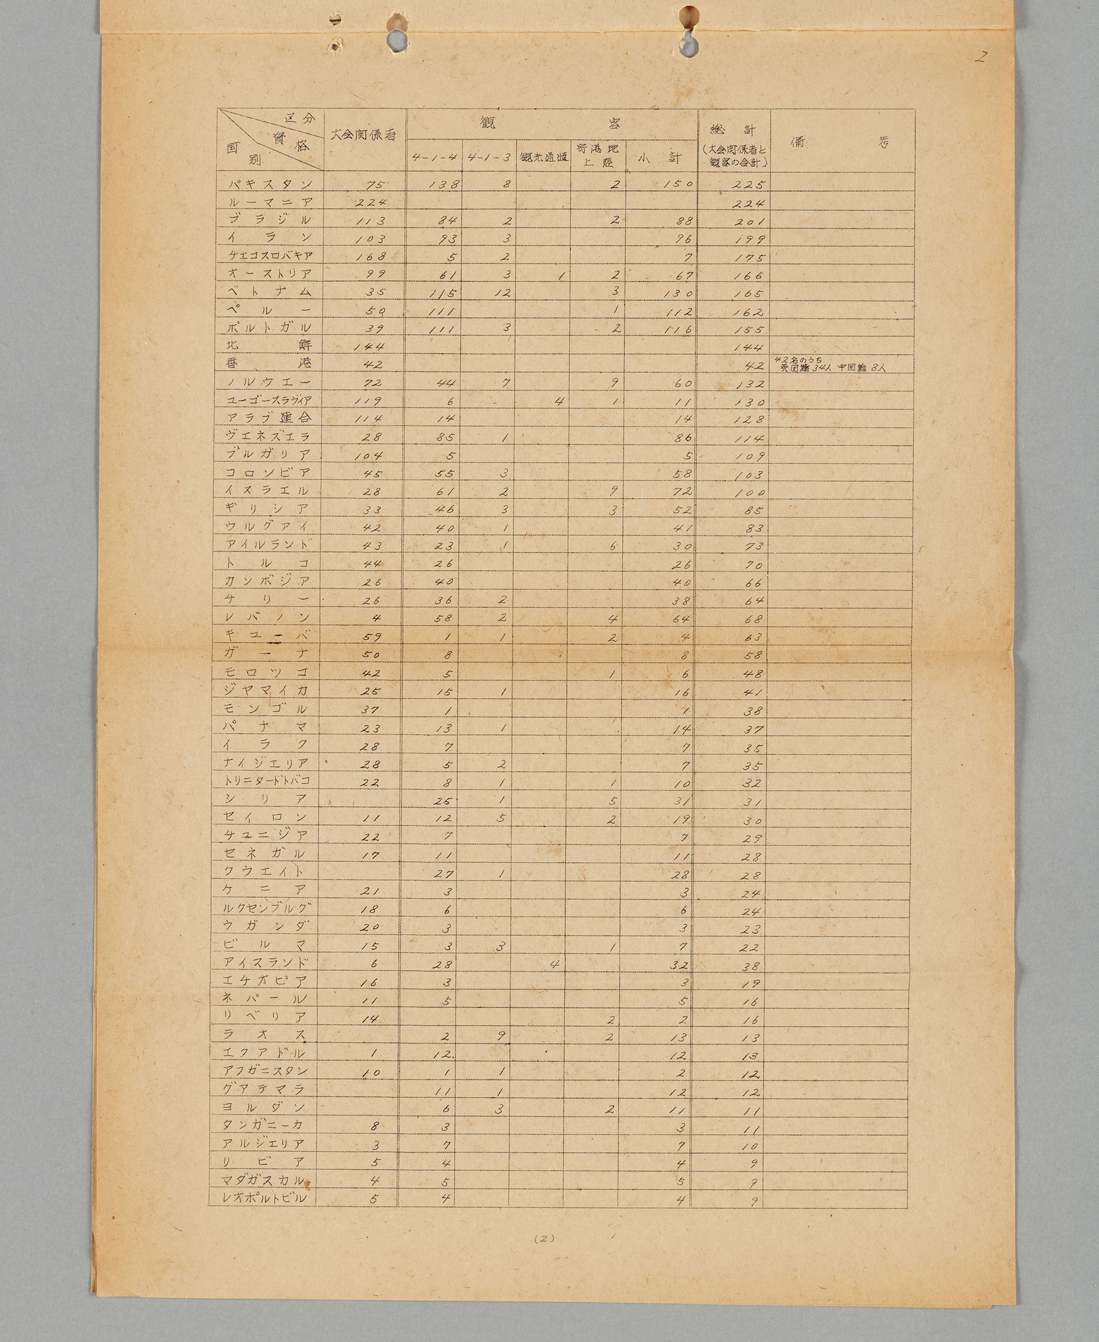 2
区分
資格
国別
大会関係者
観客
4-1-4 4-1-3 観光通過 寄港地上陸 小計
総計
(大会関係者と
観客の合計)
備考
パキスタン 75 138 8 2 150 225
ルーマニア 224 224
ブラジル 113 84 2 2 88 201
イラン 103 93 3 96 199
チエコスロバキア 168 5 2 7 175
オーストリア 99 61 3 1 2 67 166
ベトナム 35 115 12 3 130 165
ペルー 50 111 1 112 162
ポルトガル 39 111 3 2 116 155
北鮮 144 144
香港 42 42 42名のうち
英国籍34人 中国籍8人
ノルウエー 72 44 7 9 60 132
ユーゴースラヴィア 119 6 4 1 11 130
アラブ連合 114 14 14 128
ヴエネズエラ 28 85 1 86 114
ブルガリア 104 5 5 109
コロンビア 45 55 3 58 103
イスラエル 28 61 2 9 72 100
ギリシア 33 46 3 3 52 85
ウルグアイ 42 40 1 41 83
アイルランド 43 23 1 6 30 73
トルコ 44 26 26 70
カンボジア 26 40 40 66
チリー 26 36 2 38 64
レバノン 4 58 2 4 64 68
キユーバ 59 1 1 2 4 63
ガーナ 50 8 8 58
モロツコ 42 5 1 6 48
ジヤマイカ 25 15 1 16 41
モンゴル 37 1 1 38
パナマ 23 13 1 14 37
イラク 28 7 7 35
ナイジエリア 28 5 2 7 35
トリニダードトバコ 22 8 1 1 10 32
シリア 25 1 5 31 31
セイロン 11 12 5 2 19 30
チユニジア 22 7 7 29
セネガル 17 11 11 28
クウエイト 27 1 28 28
ケニア 21 3 3 24
ルクセンブルグ 18 6 6 24
ウガンダ 20 3 3 23
ビルマ 15 3 3 1 7 22
アイスランド 6 28 4 32 38
エチオピア 16 3 3 19
ネパール 11 5 5 16
リベリア 14 2 2 16
ラオス 2 9 2 13 13
エクアドル 1 12 12 13
アフガニスタン 10 1 1 2 12
グアテマラ 11 1 12 12
ヨルダン 6 3 2 11 11
タンガニーカ 8 3 3 11
アルジエリア 3 7 7 10
リビア 5 4 4 9
マダガスカル 4 5 5 9
レオポルトビル 5 4 4 9
(2)